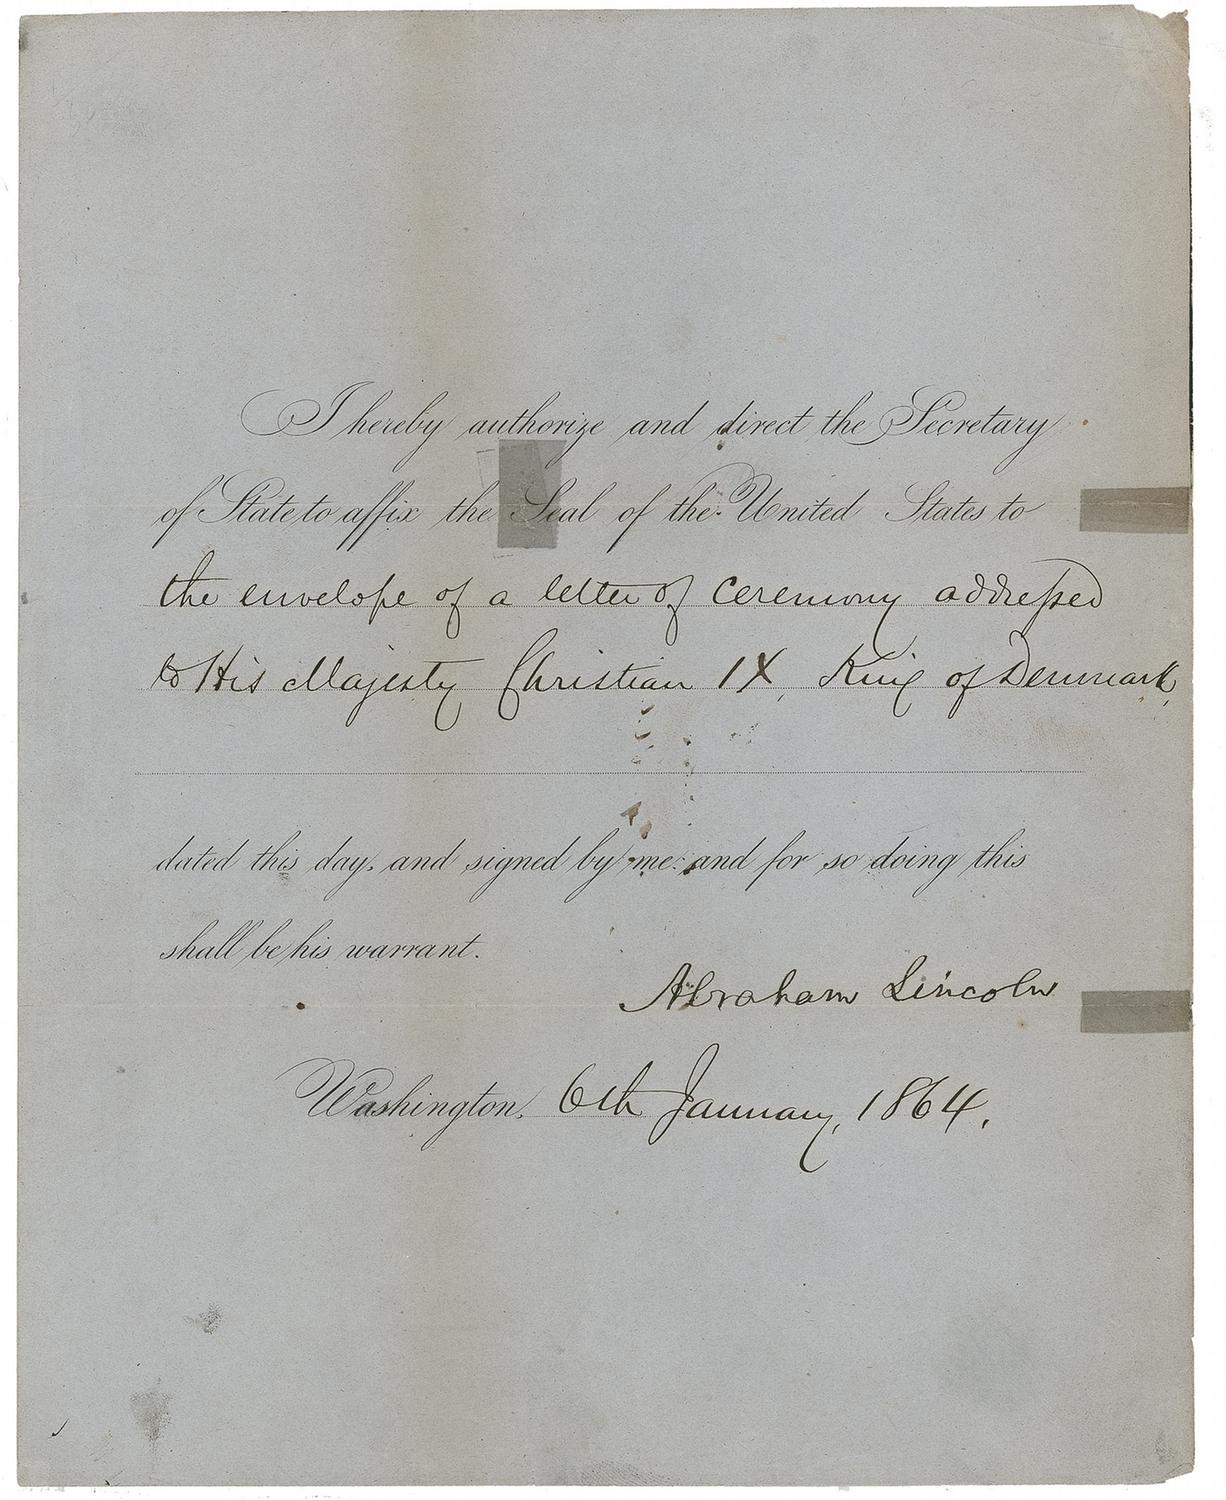 I hereby authorize and direct the Secretary
of State to affix the Seal of the United States to
the envelope of a letter of ceremony addressed
to His Majesty Christian IX, King of Denmark,
dated this day, and signed by me: and for so doing this
shall be his warrant.
Abraham Lincoln
Washington, 6th January, 1864.